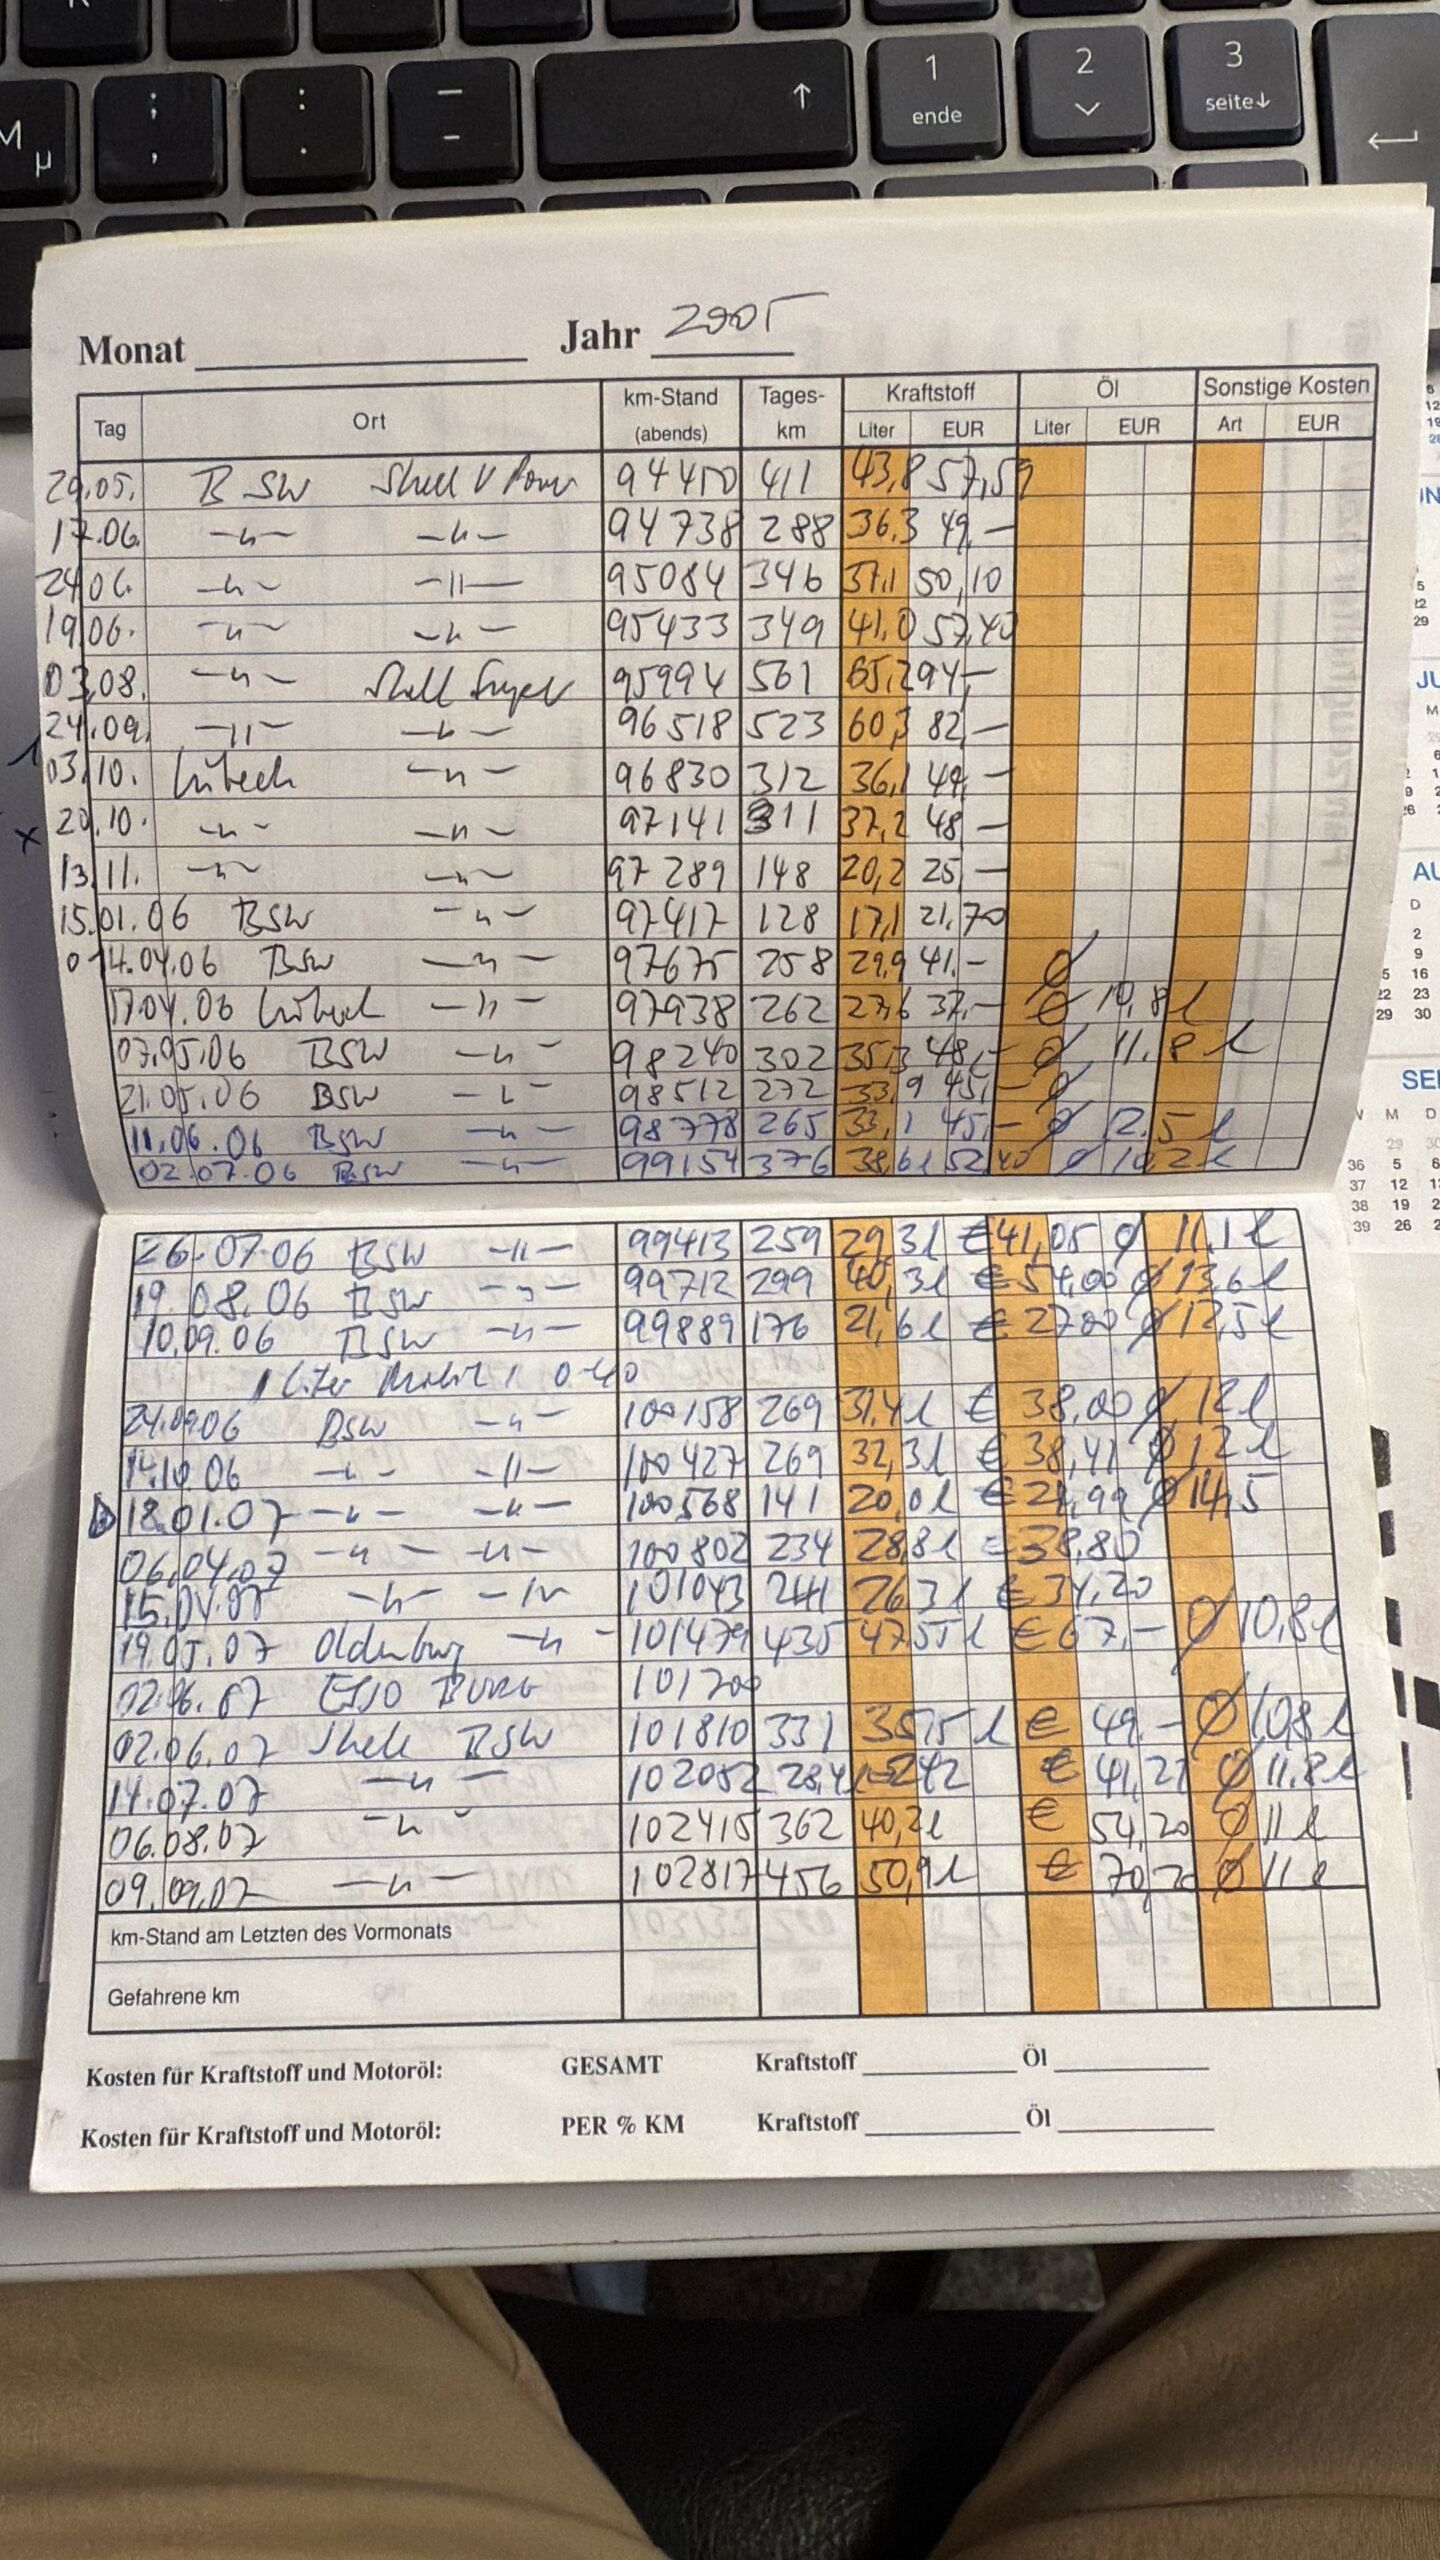 M µ ; , : . _ - ↑ 1 ende 2 3 seite↓
Monat Jahr 2005
Tag Ort km-Stand (abends) Tages-km Kraftstoff Liter EUR Öl Liter EUR Sonstige Kosten Art EUR
29.05. BSW Shell V Power 94450 411 43,8 57,59
17.06. –"– –"– 94738 288 36,3 49,–
24.06. –"– –"– 95084 346 37,1 50,10
19.06. –"– –"– 95433 349 41,0 57,40
03.08. –"– Shell Super 95994 561 65,2 94,–
24.09. –"– –"– 96518 523 60,3 82,–
03.10. Lübeck –"– 96830 312 36,1 49,–
20.10. –"– –"– 97141 311 37,2 48 –
13.11. –"– –"– 97289 148 20,2 25 –
15.01.06 BSW –"– 97417 128 17,1 21,70
14.04.06 BSW –"– 97675 258 29,9 41.– Ø
17.04.06 Lübeck –"– 97938 262 27,6 37,– Ø 10,8 l
07.05.06 BSW –"– 98240 302 35,3 48,– Ø 11.8 l
21.05.06 BSW –"– 98512 272 33,9 45,– Ø
11.06.06 BSW –"– 98778 265 33,1 45,– Ø 12.5 l
02.07.06 BSW –"– 99154 376 38,6l 52 40 Ø 10,2 l
26.07.06 BSW –"– 99413 259 29,3l €41,05 Ø 11.1 l
19.08.06 BSW –"– 99712 299 40,3l € 54,00 Ø 13,6 l
10.09.06 BSW –"– 99889 176 21,6l € 27,00 Ø 12,5 l
1 Liter Mobil 1 0-40
24.09.06 BSW –"– 100158 269 31,4l € 38,00 Ø 12 l
14.10.06 –"– –"– 100427 269 32,3l € 38,41 Ø 12 l
18.01.07 –"– –"– 100568 141 20,0l € Ø 14,5
06.04.07 –"– –"– 100802 234 28,8l € 38,80
15.04.07 –"– –"– 101043 241 26,3l € 34,20
19.05.07 Oldenburg –"– 101479 435 47,55 l € 67,– Ø 10,8 l
02.06.07 ESSO BURG 101700
02.06.07 Shell BSW 101810 331 35,75 l € 49.– Ø 10,8 l
14.07.07 –"– 102052 28,4l 242 € 41,27 Ø 11.8 l
06.08.07 –"– 102415 362 40,2l € 54,20 Ø 11 l
09.09.07 –"– 102817 456 50,9l € 70,20 Ø 11 l
km-Stand am Letzten des Vormonats
Gefahrene km
Kosten für Kraftstoff und Motoröl: GESAMT Kraftstoff Öl
Kosten für Kraftstoff und Motoröl: PER % KM Kraftstoff Öl